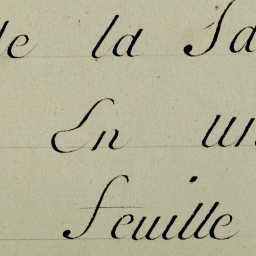 de la Sa
En un
feuille